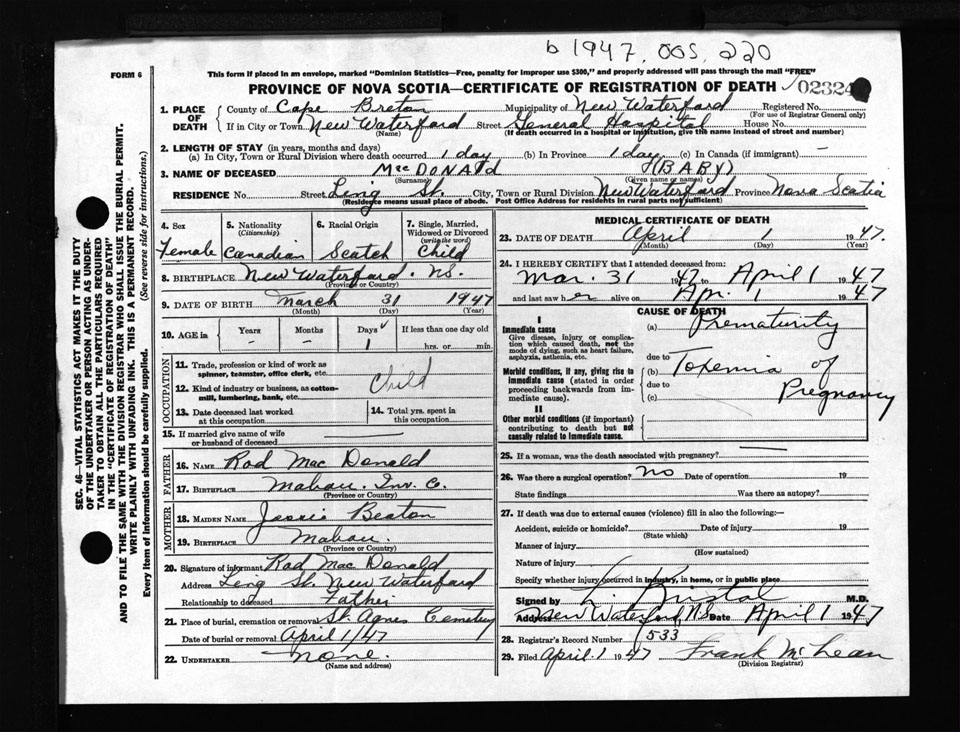 b 1947, 005, 220
FORM 6
This form if placed in an envelope, marked "Dominion Statistics—Free, penalty for improper use $300," and properly addressed will pass through the mail "FREE"
PROVINCE OF NOVA SCOTIA—CERTIFICATE OF REGISTRATION OF DEATH 02324
1. PLACE OF DEATH
County of Cape Breton Municipality of New Waterford Registered No.
(For use of Registrar General only)
If in City or Town New Waterford Street General Hospital House No.
(Name) (If death occurred in a hospital or institution, give the name instead of street and number)
2. LENGTH OF STAY (in years, months and days)
(a) In City, Town or Rural Division where death occurred 1 day (b) In Province 1 day (c) In Canada (if immigrant) —
3. NAME OF DECEASED MacDONALD (BABY)
(Surname) (Given name or names)
RESIDENCE No. Street Ling St. City, Town or Rural Division New Waterford Province Nova Scotia
(Residence means usual place of abode. Post Office Address for residents in rural parts not sufficient)
4. Sex
Female
5. Nationality
(Citizenship)
Canadian
6. Racial Origin
Scotch
7. Single, Married, Widowed or Divorced
(write the word)
Child
8. BIRTHPLACE New Waterford. NS.
(Province or Country)
9. DATE OF BIRTH March 31 1947
(Month) (Day) (Year)
10. AGE in Years Months Days If less than one day old
— — 1 hrs. or min.
OCCUPATION
11. Trade, profession or kind of work as spinner, teamster, office clerk, etc.
Child
12. Kind of industry or business, as cotton-mill, lumbering, bank, etc.
13. Date deceased last worked at this occupation
14. Total yrs. spent in this occupation
15. If married give name of wife or husband of deceased
FATHER
16. NAME Rod Mac Donald
17. BIRTHPLACE Mabou. Inv. Co.
(Province or Country)
MOTHER
18. MAIDEN NAME Jessie Beaton
19. BIRTHPLACE Mabou.
(Province or Country)
20. Signature of informant Rod Mac Donald
Address Ling St. New Waterford
Relationship to deceased Father
21. Place of burial, cremation or removal St. Agnes Cemetery
Date of burial or removal April 1/47
22. UNDERTAKER none.
(Name and address)
MEDICAL CERTIFICATE OF DEATH
23. DATE OF DEATH April 1 1947.
(Month) (Day) (Year)
24. I HEREBY CERTIFY that I attended deceased from:
Mar. 31 1947 to April 1 1947
and last saw her alive on Apr. 1 1947
CAUSE OF DEATH
I
Immediate cause
Give disease, injury or complication which caused death, not the mode of dying, such as heart failure, asphyxia, asthenia, etc.
(a) Prematurity
due to
Morbid conditions, if any, giving rise to immediate cause (stated in order proceeding backwards from immediate cause).
(b) Toxemia of
due to
(c) Pregnancy
II
Other morbid conditions (if important) contributing to death but not causally related to immediate cause.
25. If a woman, was the death associated with pregnancy?
26. Was there a surgical operation? No Date of operation 19
State findings Was there an autopsy?
27. If death was due to external causes (violence) fill in also the following:—
Accident, suicide or homicide? Date of injury 19
(State which)
Manner of injury
(How sustained)
Nature of injury
Specify whether injury occurred in industry, in home, or in public place
Signed by M.D.
Address New Waterford, N.S. Date April 1 1947
28. Registrar's Record Number 533
29. Filed April. 1 1947 Frank McLean
(Division Registrar)
SEC. 46—VITAL STATISTICS ACT MAKES IT THE DUTY
OF THE UNDERTAKER OR PERSON ACTING AS UNDER-
TAKER TO OBTAIN ALL THE PARTICULARS REQUIRED
IN THE "CERTIFICATE OF REGISTRATION OF DEATH"
AND TO FILE THE SAME WITH THE DIVISION REGISTRAR WHO SHALL ISSUE THE BURIAL PERMIT.
WRITE PLAINLY WITH UNFADING INK. THIS IS A PERMANENT RECORD.
Every item of information should be carefully supplied. (See reverse side for instructions.)